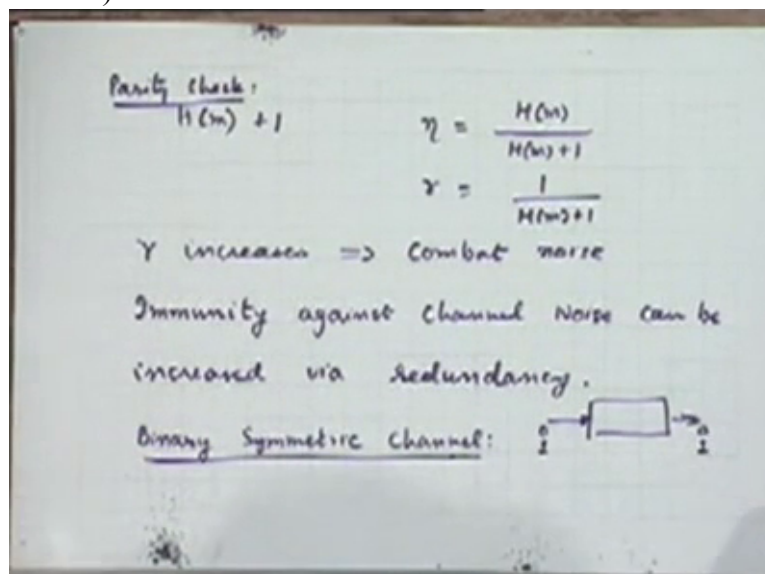 Parity Check:
H(m) + 1
η = H(m) / H(m) + 1
γ = 1 / H(m) + 1
γ increases => Combat noise
Immunity against channel Noise can be
increased via redundancy.
Binary Symmetric Channel: 0 1 0 1